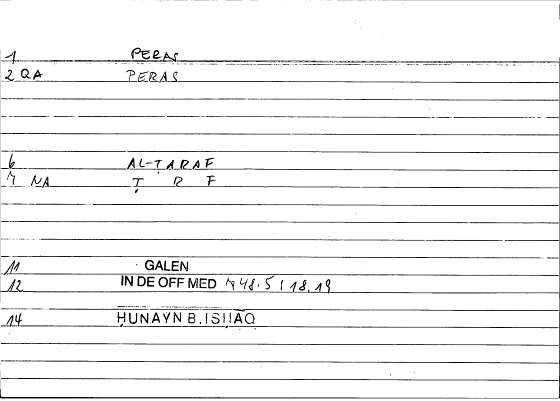 1 PERAS
2 QA PERAS
6 AL-ṬARAF
7 NA Ṭ R F
11 GALEN
12 IN DE OFF MED 748.5 | 18.19
14 ḤUNAYN B. ISḤĀQ